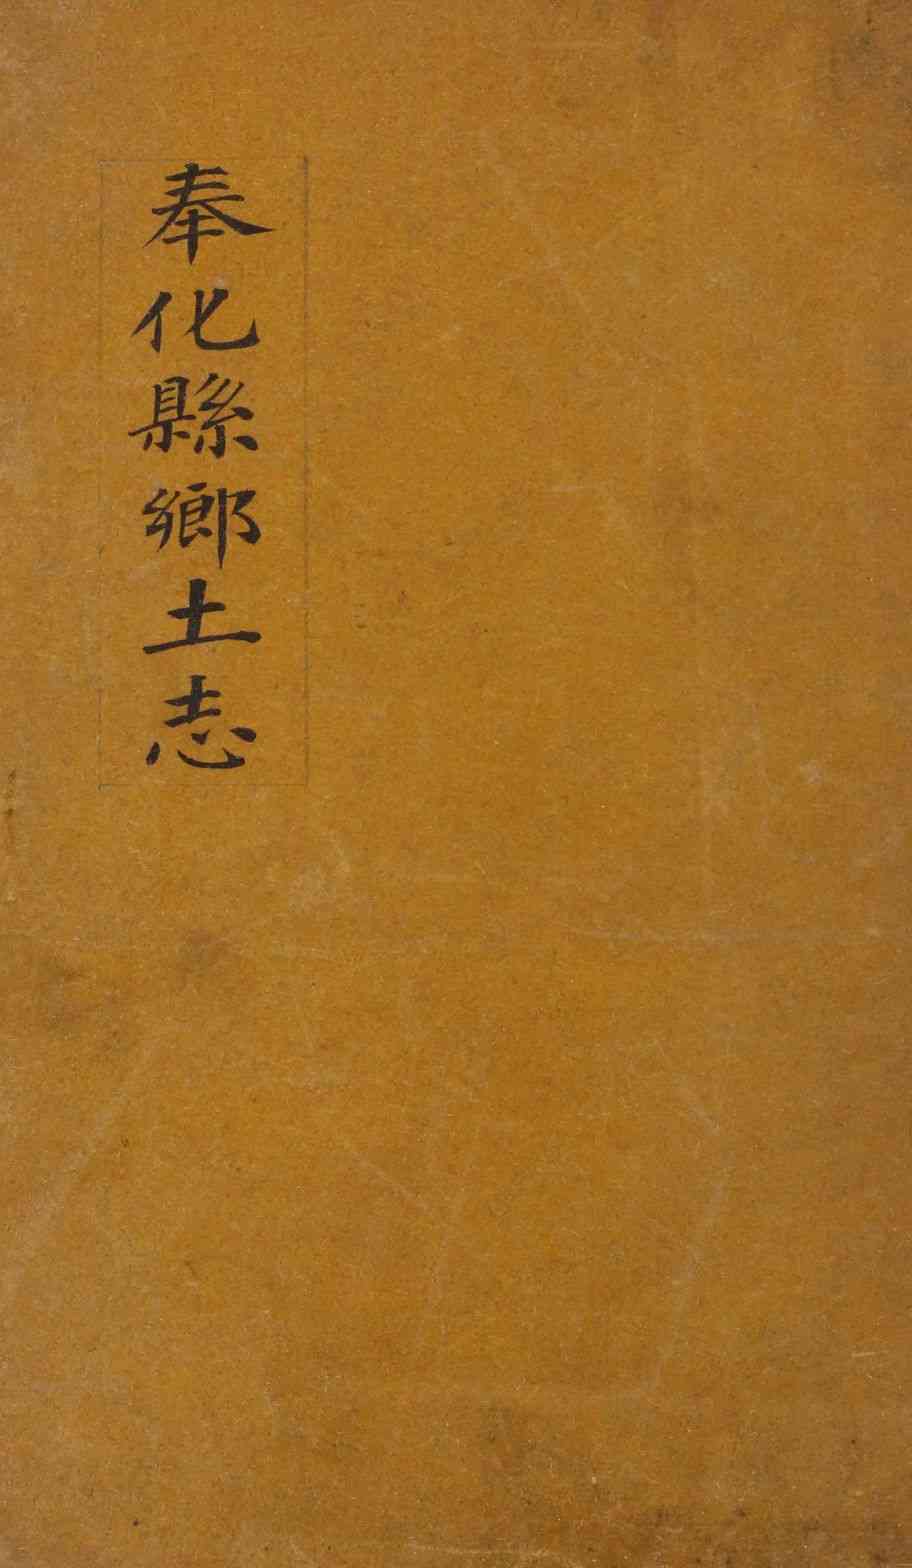 奉化縣鄉土志